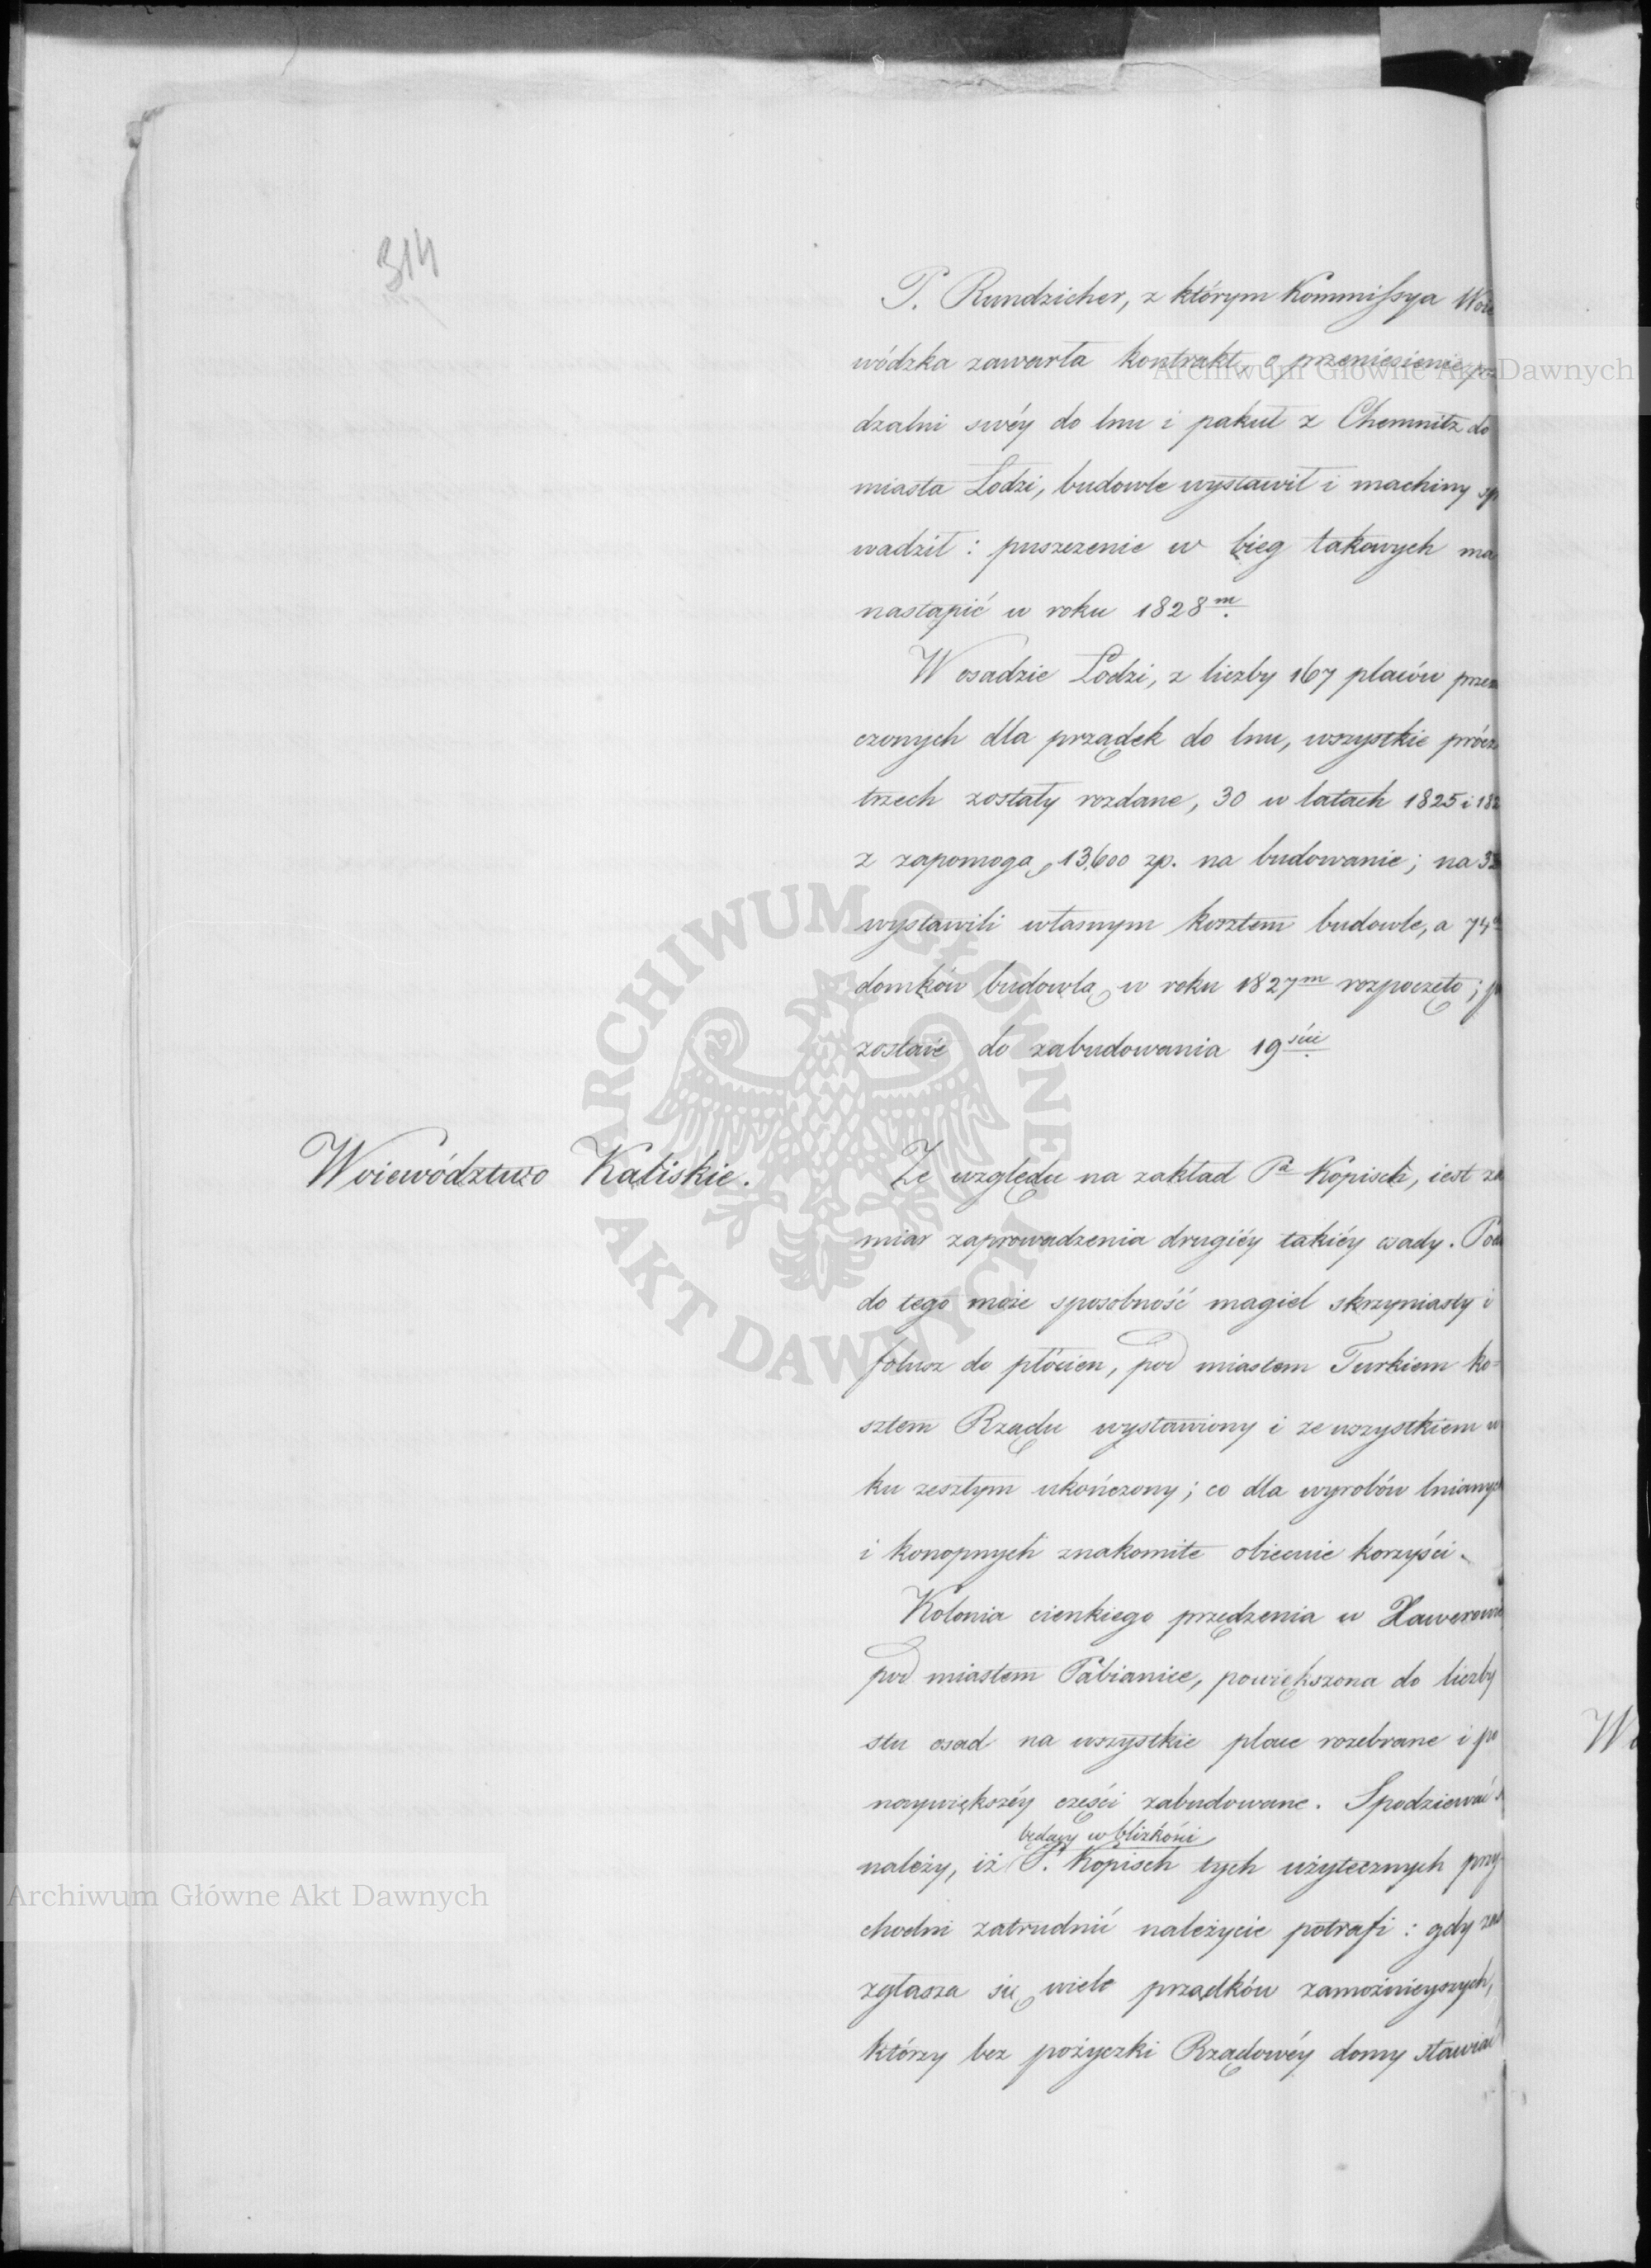 314
P. Rundzieher, z którym Kommissya Woie
wódzka zawarła kontrakt, o przeniesienie prz
dzalni swéy do lnu i pakuł z Chemnitz do
miasta Łodzi, budowle wystawił i machiny sp
wadził: puszczenie w bieg takowych ma
nastąpić w roku 1828m.
W osadzie Łodzi, z liczby 167 placów przezn
czonych dla prządek do lnu, wszystkie prócz
trzech zostały rozdane, 30 w latach 1825 i 182
z zapomogą 13,600 zp. na budowanie; na 3
wystawili własnym kosztem budowle, a 74
domków budowlą w roku 1827m rozpoczęto; p
zostaie do zabudowania 19ście.
Woiewództwo Kaliskie.
Ze względu na zakład Pa Kopisch, iest za
miar zaprowadzenia drugiéy takiéy
do tego może sposobność magiel skrzyniasty i
folusz do płócien, pod miastem Turkiem ko=
sztem Rządu wystawiony i ze wszystkiem w
ku zeszłym ukończony; co dla wyrobów lnianych
i konopnych znakomite obiecuie korzyści.
Kolonia cienkiego przędzenia w Xawerowie
pod miastem Pabianice, powiększona do liczby
stu osad na wszystkie place rozebrane i po
naywiększéy części zabudowane. Spodziewać s
będący w blizkości
należy, iż P. Kopisch tych użytecznych przy-
chodni zatrudnić należycie potrafi: gdy zaś
zgłasza się wiele prządków zamożnieyszych,
którzy bez pożyczki Rządowéy domy stawiać
W
Archiwum Główne Akt Dawnych
Archiwum Główne Akt Dawnych
ARCHIWUM GŁÓWNE AKT DAWNYCH